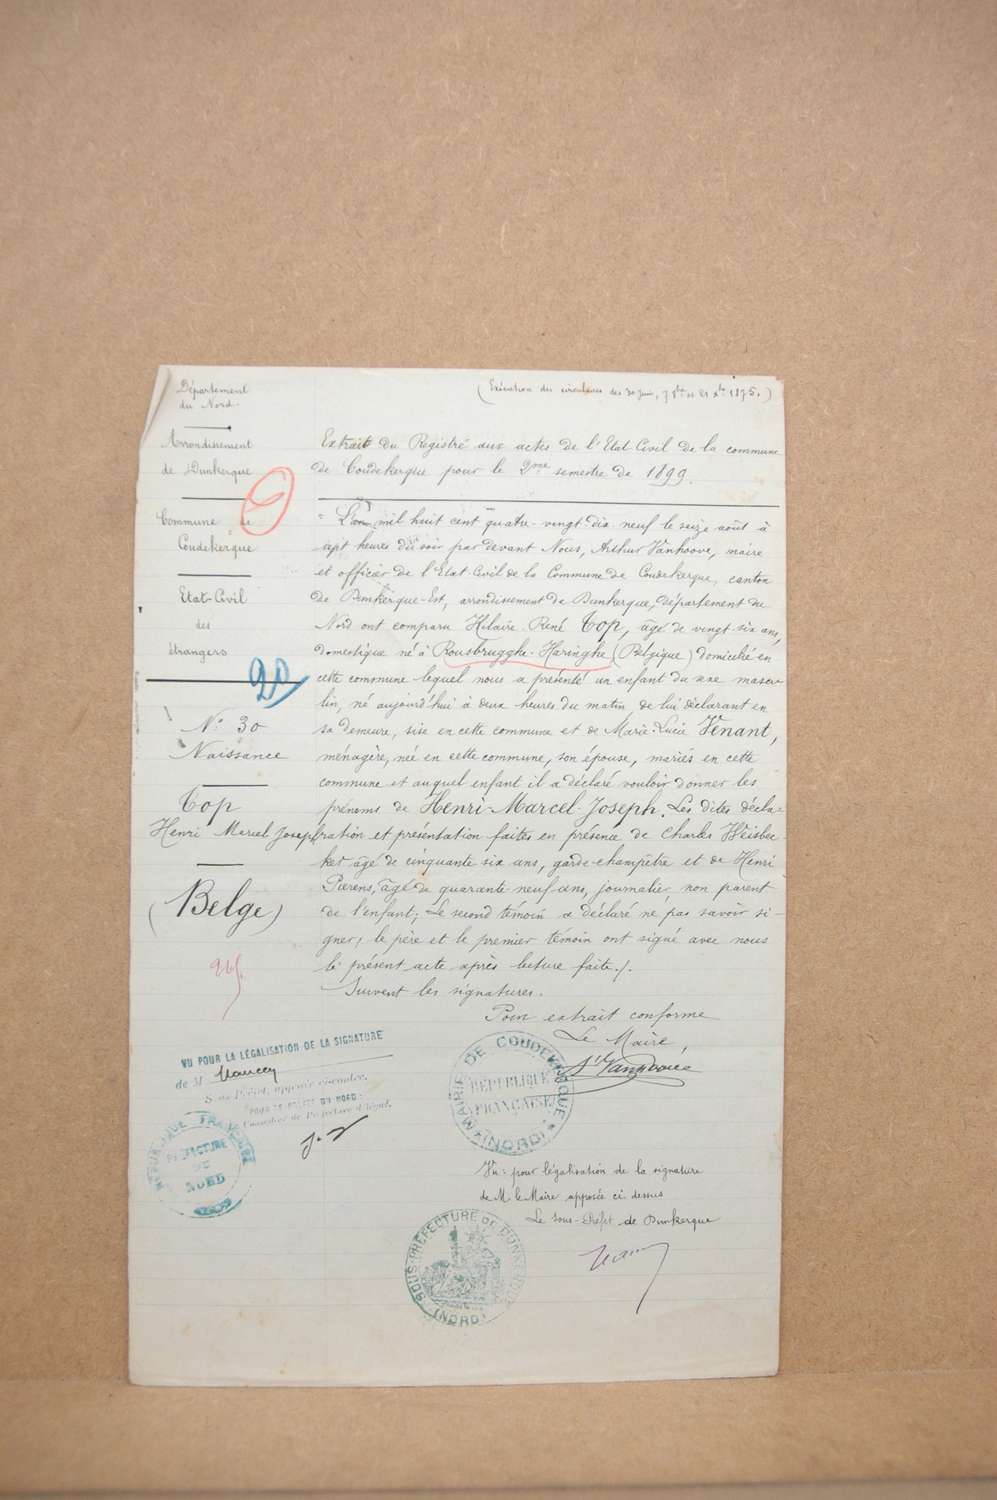 Département
du Nord.
Arrondissement
de Dunkerque
Commune de
Coudekerque
Etat-Civil
des
étrangers
20
N° 30
Naissance
Top
Henri Marcel Joseph
(Belge)
(Exécution des circulaires des 30 Juin, 7 8bre et 21 Xbre 1875.)
Extrait du Registre aux actes de l'Etat Civil de la commune
de Coudekerque pour le 2me semestre de 1899.
L'an mil huit cent quatre-vingt dix neuf le seize août à
sept heures du soir par devant Nous, Arthur Vanhoove, maire
et officier de l'Etat Civil de la Commune de Coudekerque, canton
de Dunkerque-Est, arrondissement de Dunkerque, département du
Nord ont comparu Hilaire René Top, âgé de vingt six ans,
domestique né à Rousbrugghe-Haringhe (Belgique) domicilié en
cette commune lequel nous a présenté un enfant du sexe mascu-
lin, né aujourd'hui à deux heures du matin, de lui déclarant en
sa demeure, sise en cette commune et de Marie-Lucie Venant,
ménagère, née en cette commune, son épouse, mariés en cette
commune et auquel enfant il a déclaré vouloir donner les
prénoms de Henri-Marcel-Joseph. Les dites décla-
ration et présentation faites en présence de Charles Weisbec-
ker âgé de cinquante six ans, garde-champêtre et de Henri
Pierens, âgé de quarante-neuf ans, journalier, non parent
de l'enfant; Le second témoin a déclaré ne pas savoir si-
gner; le père et le premier témoin ont signé avec nous
le présent acte après lecture faite./.
Suivent les signatures.
Pour extrait conforme
Le Maire,
Ar Vanhoove
MAIRIE DE COUDEKERQUE
RÉPUBLIQUE
FRANÇAISE
(NORD)
VU POUR LA LÉGALISATION DE LA SIGNATURE
de M
S. de Préfet, apposée ci-contre.
POUR LE PRÉFET DU NORD:
Conseiller de Préfecture délégué.
RÉPUBLIQUE FRANÇAISE
PRÉFECTURE
DU
NORD
Vu: pour légalisation de la signature
de M. le Maire apposée ci-dessus
Le Sous-Préfet de Dunkerque
SOUS-PRÉFECTURE DE DUNKERQUE
(NORD)